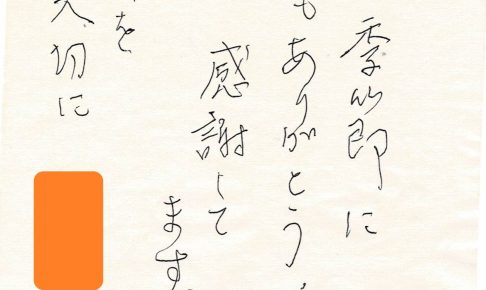 季節に
もありがとう
感謝して
ます。
を
大切に